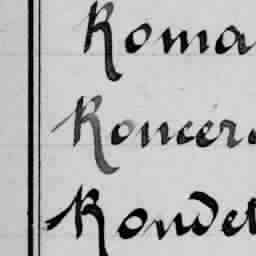 Roma
Roncer
Rondet